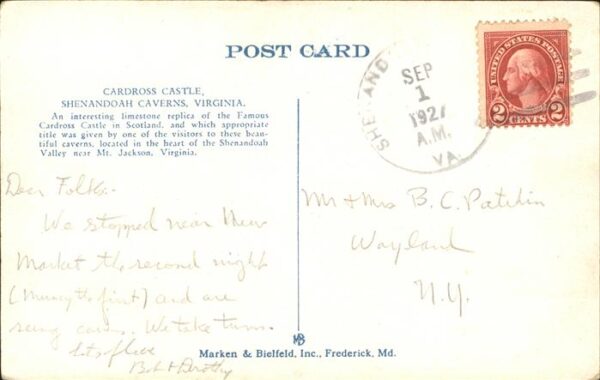 POST CARD
CARDROSS CASTLE,
SHENANDOAH CAVERNS, VIRGINIA.
An interesting limestone replica of the Famous
Cardross Castle in Scotland, and which appropriate
title was given by one of the visitors to these beau-
tiful caverns, located in the heart of the Shenandoah
Valley near Mt. Jackson, Virginia.
SEP
1
1927
A.M.
VA.
UNITED STATES POSTAGE
2 CENTS 2
Dear Folks:-
We stopped near New
Market the second night
(Muncy the first) and are
seeing caves. We take turns.
Lots of love
Bob & Dorothy
Mr & Mrs B. C. Patchin
Wayland
N.Y.
Marken & Bielfeld, Inc., Frederick, Md.